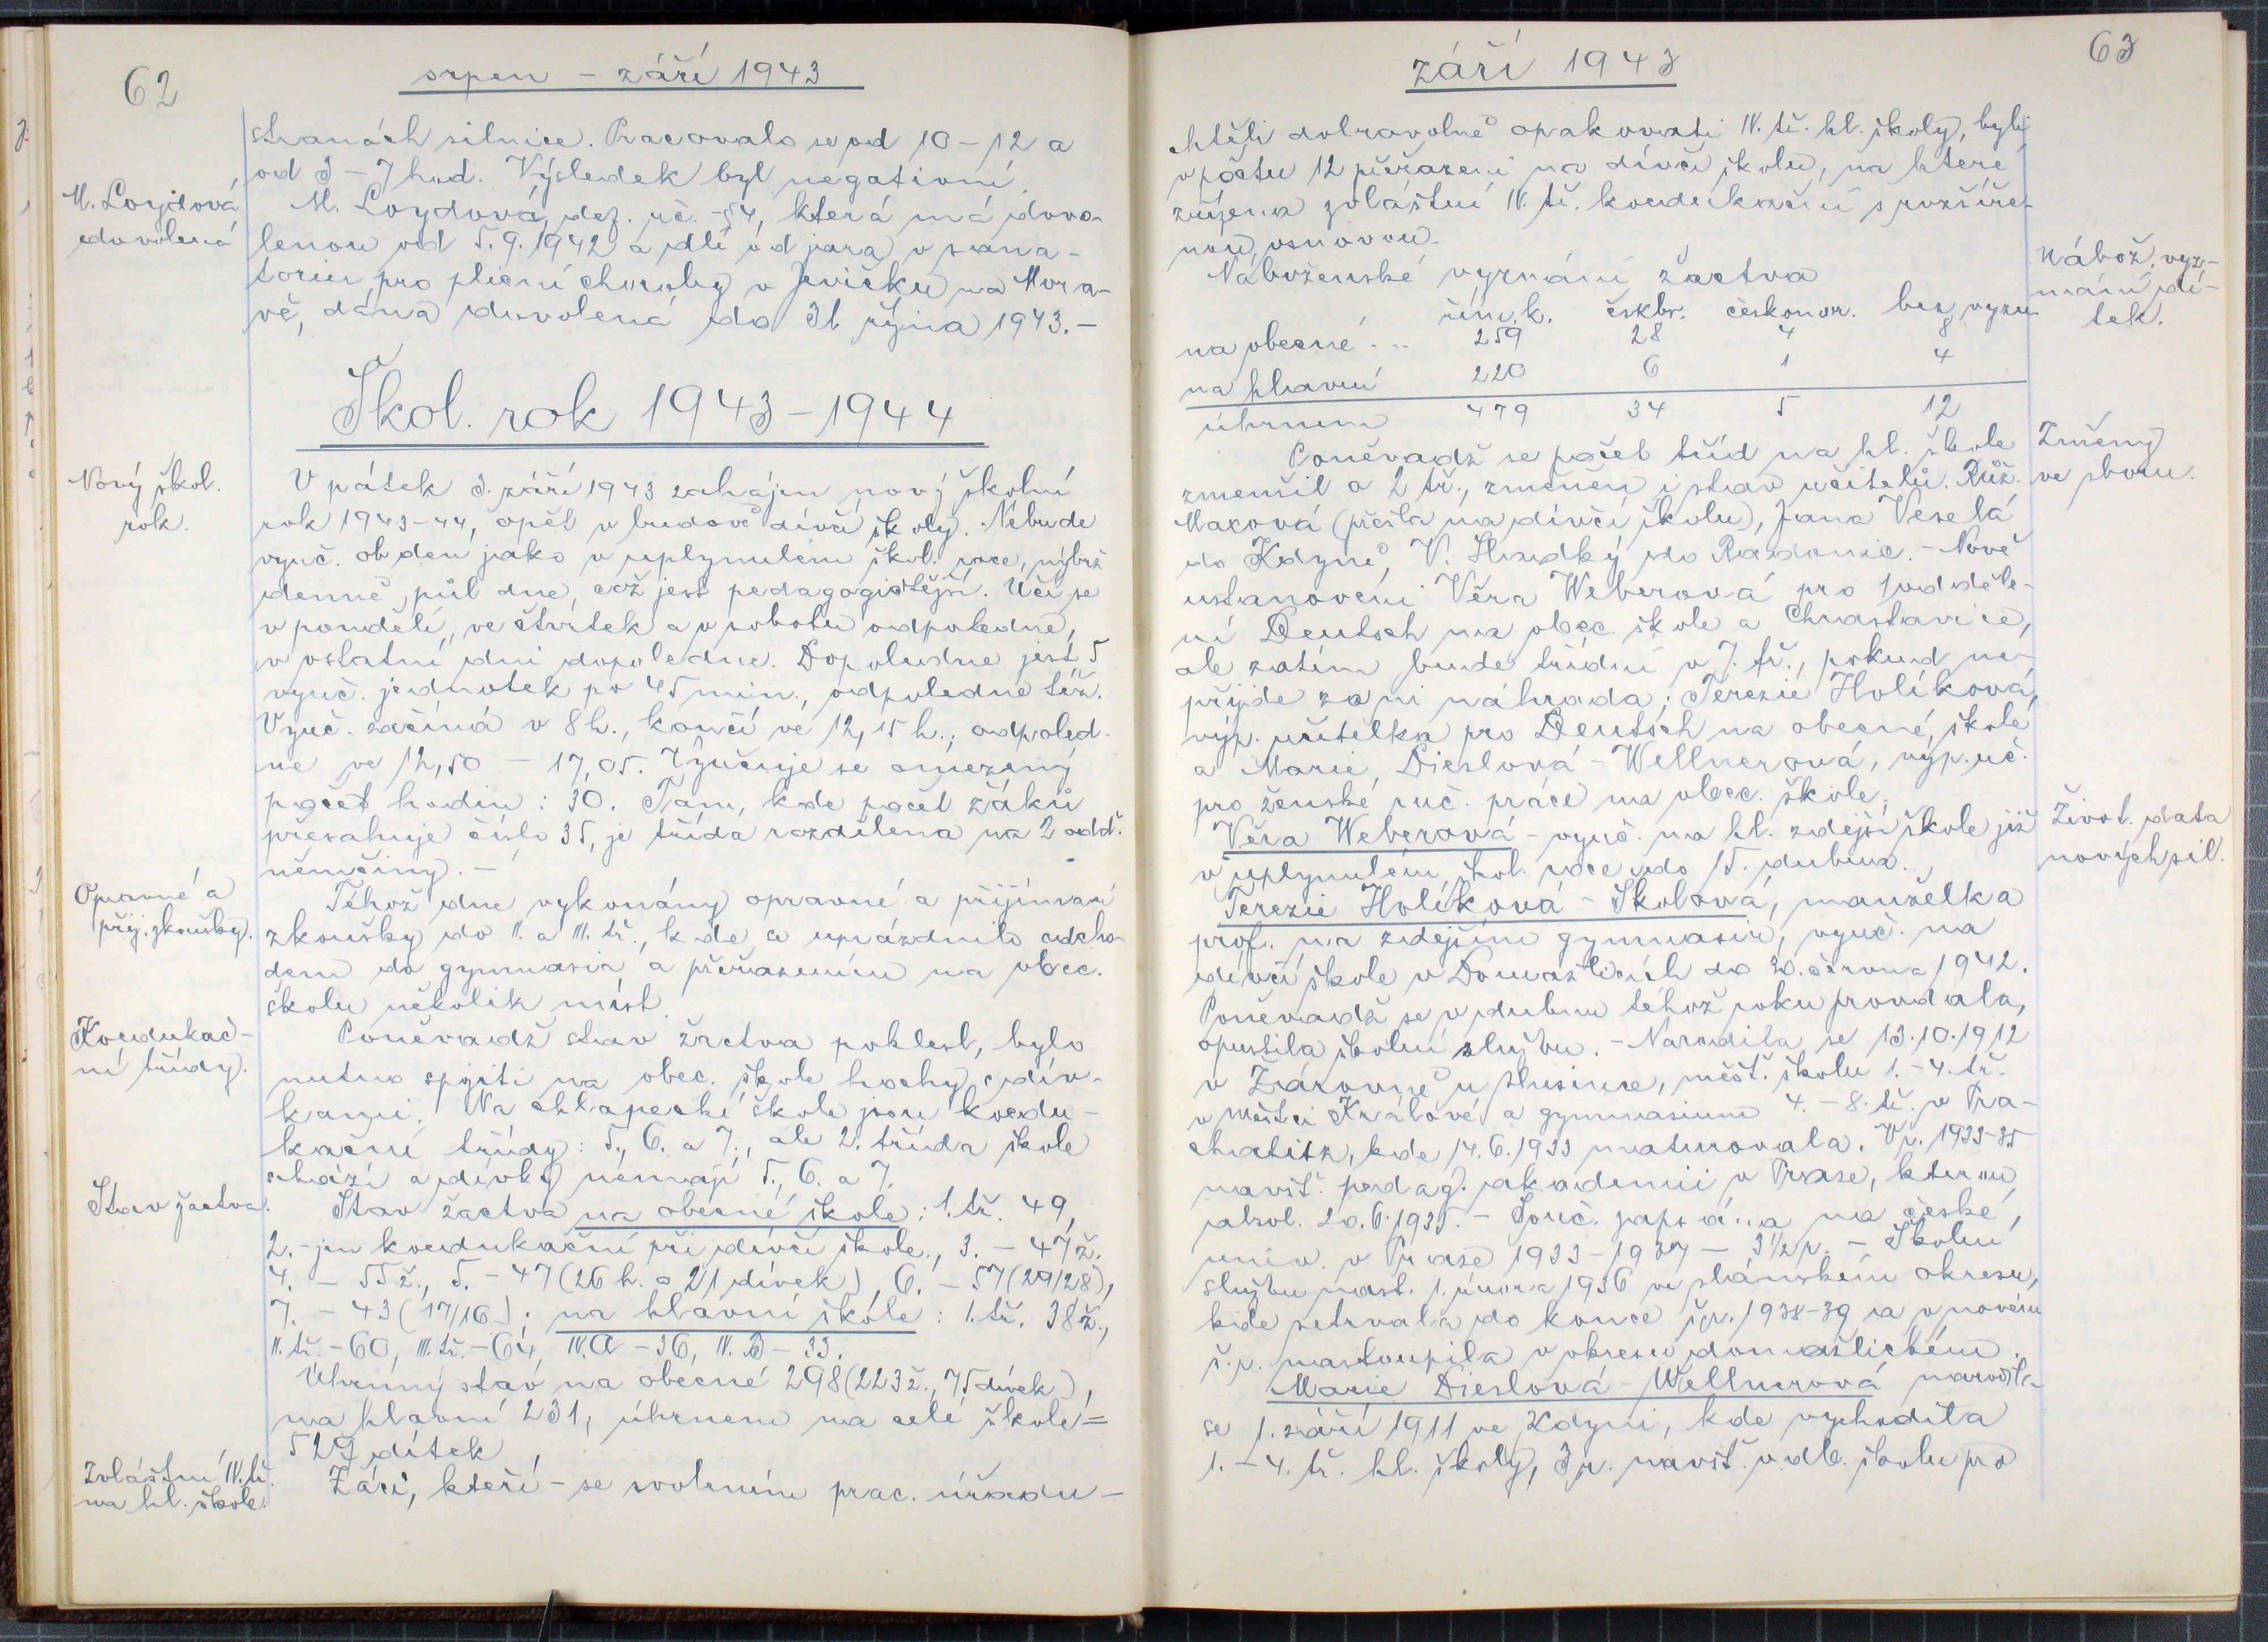 62
srpen – září 1943
stranách silnice. Pracovalo se od 10 – 12 a
od 3 – 7 hod. Výsledek byl negativní.
M. Lojdová
dovolená
M. Loydová, def. uč. -š4, která má dovo-
lenou od 5. 9. 1942 a dlí od jara v sana-
toriu pro plicní choroby v Jevíčku na Mora-
vě, dána dovolená do 31. října 1943. –
Škol. rok 1943 – 1944
Nový škol.
rok.
V pátek 3. září 1943 zahájen nový školní
rok 1943-44, opět v budově dívčí školy. Nebude
vyuč. ob den jako v uplynulém škol. roce, nýbrž
denně půl dne, což jest pedagogičtější. Učí se
v pondělí, ve čtvrtek a v sobotu odpoledne,
v ostatní dni dopoledne. Dopoledne jest 5
vyuč. jednotek po 45 min., odpoledne též.
Vyuč. začíná v 8 h., končí ve 12,15 h.; odpoled-
ne ve 12,50 – 17,05. Vyučuje se omezený
počet hodin: 30. Tam, kde počet žáků
přesahuje číslo 35, je třída rozdělena na 2 odd.
němčiny. –
Opravné a
přij. zkoušky.
Téhož dne vykonány opravné a přijímací
zkoušky do II. a III. tř., kde se uprázdnilo odcho-
dem do gymnasia a přeřazením na obec.
školu několik míst.
Koedukač-
ní třídy.
Poněvadž stav žactva poklesl, bylo
nutno spojiti na obec. škole hochy s dív-
kami. Na chlapecké škole jsou koedu-
kační třídy: 5., 6. a 7., ale 2. třída škole
schází a dívky nemají 5., 6. a 7.
Stav žactva.
Stav žactva na obecné škole: 1. tř. 49,
2. – jen koedukační při dívčí škole, 3. – 47 ž.
4. – 55 ž., 5. – 47 (26 h. a 21 dívek), 6. – 57 (29/28),
7. – 43 (17/16); na hlavní škole: 1. tř. 38 ž.,
II. tř. – 60, III. tř. – 64, IV. A – 36, IV. B – 33.
Úhrnný stav na obecné 298 (223 ž., 75 dívek),
na hlavní 231, úhrnem na celé škole =
529 dítek
Zvláštní IV. tř.
na hl. škole.
Žáci, kteří – se svolením prac. úřadu –
63
září 1943
chtěli dobrovolně opakovati IV. tř. hl. školy, byli
v počtu 12 přeřazeni na dívčí školu, na které
zřízena zvláštní IV. tř. koedukační s rozšíře-
nou osnovou.
Nábož. vyz-
nání dí-
tek.
Náboženské vyznání žactva
řím. k. čskbr. českomor. bez vyzn.
na obecné ... 259 28 4 8
na hlavní 220 6 1 4
úhrnem 479 34 5 12
Změny
ve sboru.
Poněvadž se počet tříd na hl. škole
zmenšil o 2 tř., změněn i stav učitelů. Růž.
Maxová (přešla na dívčí školu), Jana Veselá
do Kdyně, V. Hrudký do Radonic. – Nově
ustanoveni Věra Weberová pro 1 odděle-
ní Deutsch na obec. škole a Chrastavice,
ale zatím bude třídní v 7. tř., pokud ne-
přijde za ni náhrada; Terezie Holíková,
výp. učitelka pro Deutsch na obecné škole
a Marie Dieslová – Wellnerová, výp. uč.
pro ženské ruč. práce na obec. škole.
Život. data
nových sil.
Věra Weberová – vyuč. na hl. zdejší škole již
v uplynulém škol. roce do 15. dubna.
Terezie Holíková – Skolová, manželka
prof. na zdejším gymnasiu, vyuč. na
dívčí škole v Domažlicích do 30. června 1942.
Poněvadž se v dubnu téhož roku provdala,
opustila školní službu. – Narodila se 13. 10. 1912
v Žárovné u Husince, měšť. školu 1. – 4. tř.
v Městci Králové a gymnasium 4. – 8. tř. v Pra-
chaticích, kde 14. 6. 1933 maturovala. V r. 1933-35
navšt. pedag. akademii v Praze, kterou
absol. 20. 6. 1935. – Souč. zapsána na české
univ. v Praze 1933 – 1937 – 3 1/2 r. – Školní
službu nast. 1. února 1936 ve slánském okresu,
kde setrvala do konce š. r. 1938-39 a v novém
š. r. nastoupila v okresu domažlickém.
Marie Dieslová – Wellnerová narodila
se 1. září 1911 ve Kdyni, kde vychodila
1. – 4. tř. hl. školy, 3 r. navšt. odb. školu pro